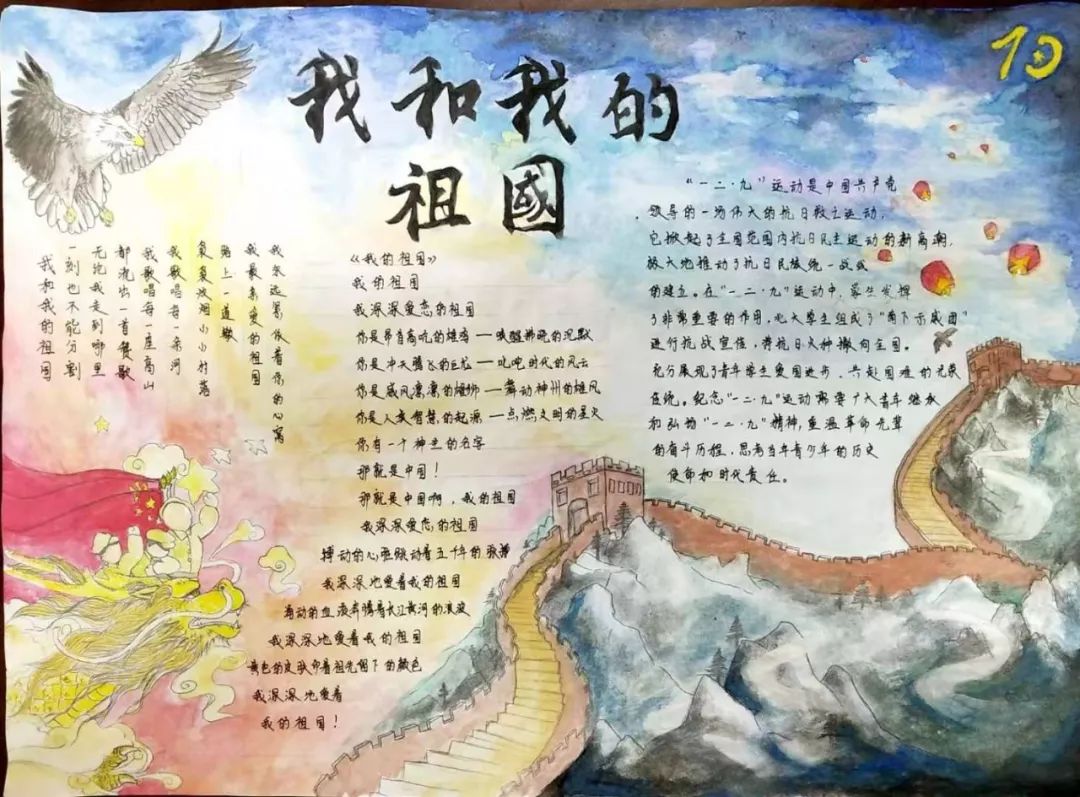 我和我的
祖國
70
我和我的祖国
一刻也不能分割
无论我走到哪里
都流出一首赞歌
我歌唱每一座高山
我歌唱每一条河
袅袅炊烟小小村落
路上一道辙
我最亲爱的祖国
我永远紧依着你的心窝
《我的祖国》
我的祖国
我深深爱恋的祖国
你是昂首高吭的雄鸡——唤醒拂晓的沉默
你是冲天腾飞的巨龙——叱咤时代的风云
你是威风凛凛的雄狮——舞动神州的雄风
你是人类智慧的起源——点燃文明的星火
你有一个神圣的名字
那就是中国！
那就是中国啊，我的祖国
我深深爱恋的祖国
搏动的心 动着五千年的
我深深地爱着我的祖国
涌动的血液奔腾着长江黄河的浪波
我深深地爱着我的祖国
黄色的皮肤印着祖先留下的颜色
我深深地爱着
我的祖国！
“一二·九”运动是中国共产党
领导的一场伟大的抗日救亡运动，
它掀起了全国范围内抗日民主运动的新高潮，
极大地推动了抗日民族统一战线
的建立。在“一二·九”运动中，学生发挥
了非常重要的作用，北大学生组成了“南下示威团”
进行抗战宣传，将抗日火种撒向全国。
充分展现了青年学生爱国进步，共赴国难的光荣
传统。纪念“一二·九”运动需要广大青年继承
和弘扬“一二·九”精神，重温革命先辈
的奋斗历程，思考当年青少年的历史
使命和时代责任。